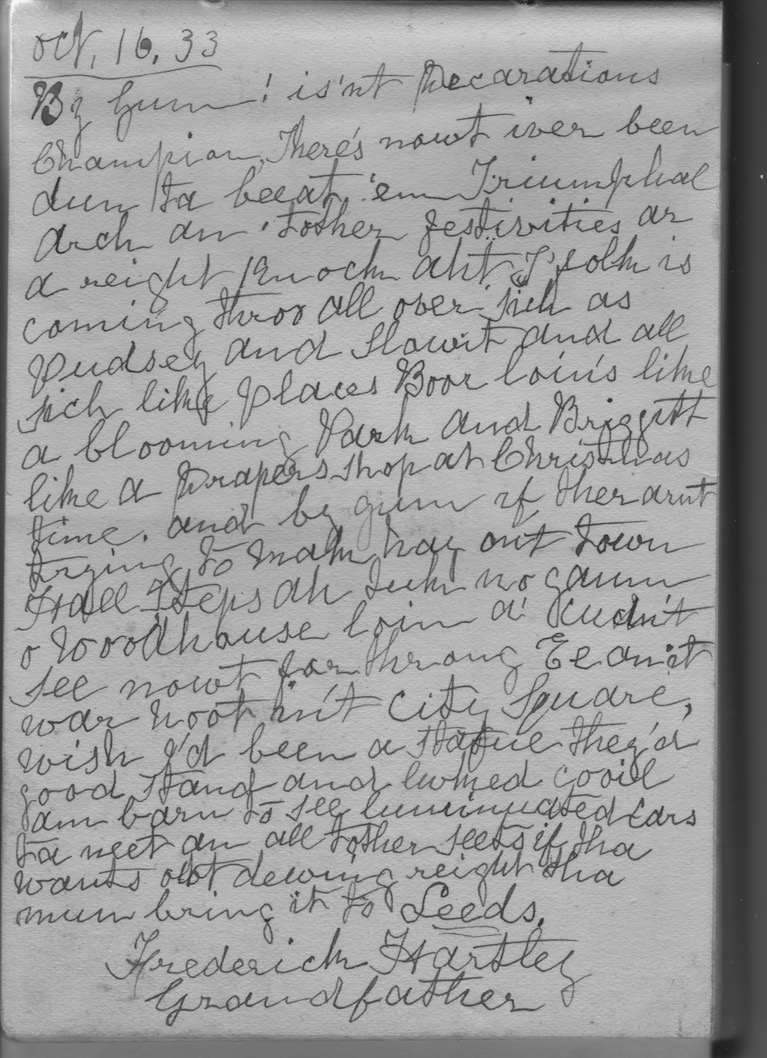 Oct, 16, 33
By Gum! is'nt Decarations
Champion, There's nowt iver been
dun ta beeat 'em Triumphal
Arch an' tother festivities ar
a reight Knock aht T'folk is
coming throo all over sich as
Pudsey and Slowit and all
sich like places Boor loin's like
a blooming Park and Briggitt
like a Drapers shop at Christmas
time. and by gum if ther arnt
trying to mak hay ont Town
Hall Steps ah tuk no gaum
o Woodhouse loin a' Cudn't
see nowt for throng Ee an it
war hoot in't City Square,
wish I'd been a statue they'd
good stand and lewked cooil
am barn to see luminuated Cars
ta neet an all tother seets if tha
wants owt dewing reight tha
mun bring it to Leeds.
Frederick Hartley
Grandfather